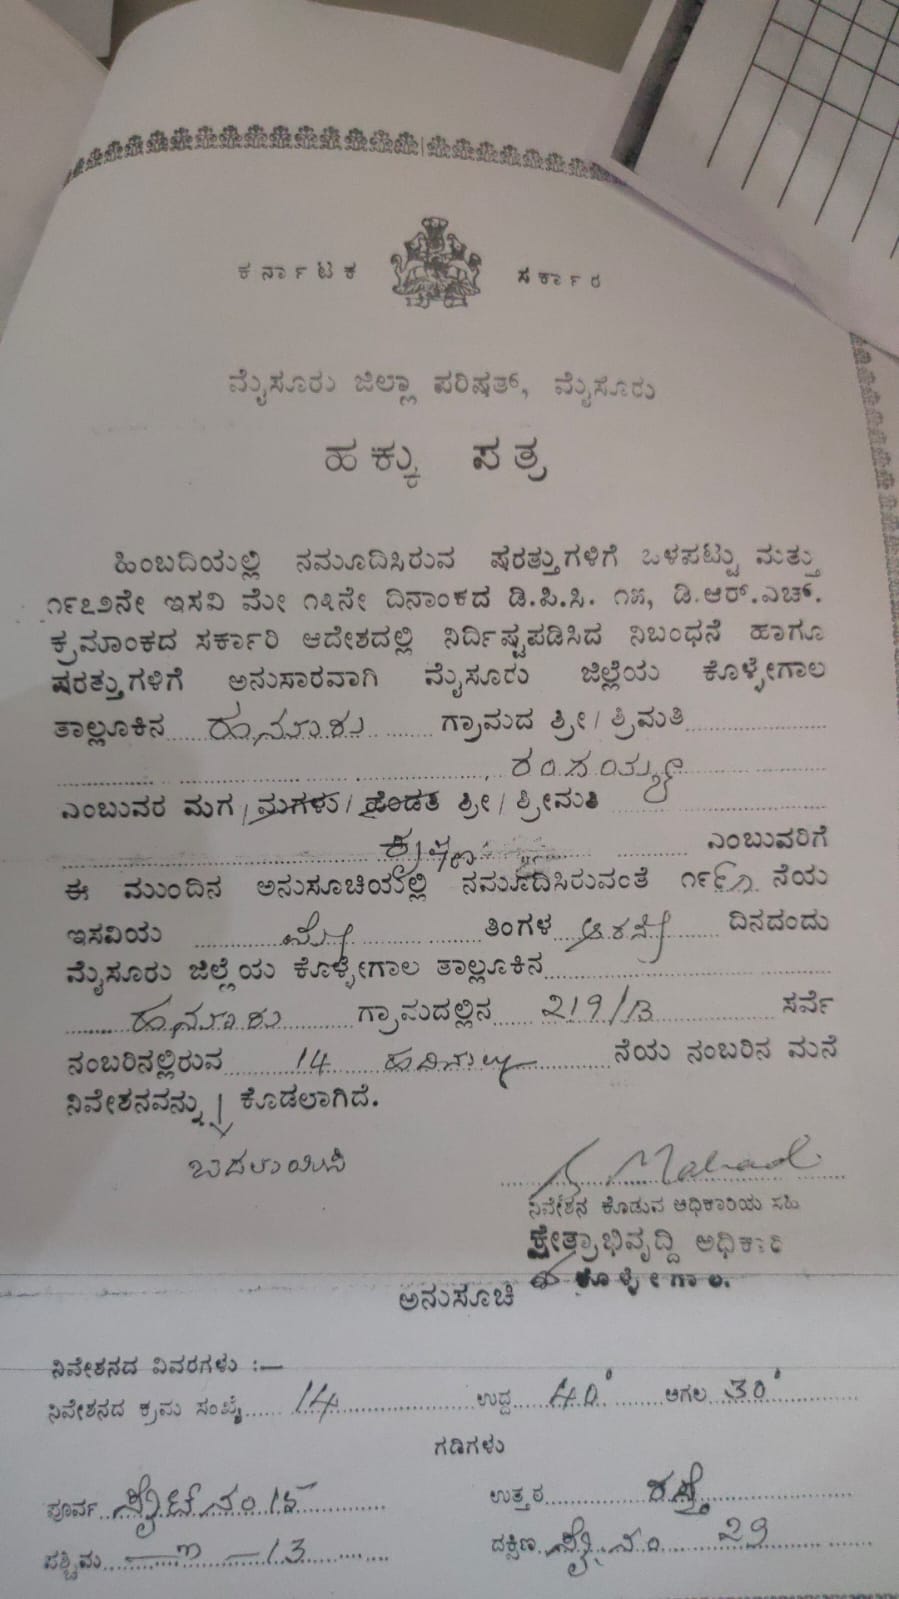 ಕರ್ನಾಟಕ ಸರ್ಕಾರ
ಮೈಸೂರು ಜಿಲ್ಲಾ ಪರಿಷತ್, ಮೈಸೂರು
ಹಕ್ಕು ಪತ್ರ
ಹಿಂಬದಿಯಲ್ಲಿ ನಮೂದಿಸಿರುವ ಷರತ್ತುಗಳಿಗೆ ಒಳಪಟ್ಟು ಮತ್ತು
೧೯೭೨ನೇ ಇಸವಿ ಮೇ ೧೫ನೇ ದಿನಾಂಕದ ಡಿ.ಪಿ.ಸಿ. ೧೫, ಡಿ.ಆರ್.ಎಚ್.
ಕ್ರಮಾಂಕದ ಸರ್ಕಾರಿ ಆದೇಶದಲ್ಲಿ ನಿರ್ದಿಷ್ಟಪಡಿಸಿದ ನಿಬಂಧನೆ ಹಾಗೂ
ಷರತ್ತುಗಳಿಗೆ ಅನುಸಾರವಾಗಿ ಮೈಸೂರು ಜಿಲ್ಲೆಯ ಕೊಳ್ಳೇಗಾಲ
ತಾಲ್ಲೂಕಿನ ಹನೂರು ಗ್ರಾಮದ ಶ್ರೀ/ಶ್ರಿಮತಿ
ರಂಗಯ್ಯ
ಎಂಬುವರ ಮಗ/ಮಗಳು/ಹೆಂಡತಿ ಶ್ರೀ/ಶ್ರೀಮತಿ
ಕೃಷ್ಣ ಎಂಬುವರಿಗೆ
ಈ ಮುಂದಿನ ಅನುಸೂಚಿಯಲ್ಲಿ ನಮೂದಿಸಿರುವಂತೆ ನೆಯ
ಇಸವಿಯ ಮೇ ತಿಂಗಳ ದಿನದಂದು
ಮೈಸೂರು ಜಿಲ್ಲೆಯ ಕೊಳ್ಳೇಗಾಲ ತಾಲ್ಲೂಕಿನ
ಹನೂರು ಗ್ರಾಮದಲ್ಲಿನ 219/B ಸರ್ವೆ
ನಂಬರಿನಲ್ಲಿರುವ 14 ಹದಿನಾಲ್ಕ ನೆಯ ನಂಬರಿನ ಮನೆ
ನಿವೇಶನವನ್ನು ಕೊಡಲಾಗಿದೆ.
ಬದಲಾಯಿಸಿ
ನಿವೇಶನ ಕೊಡುವ ಅಧಿಕಾರಿಯ ಸಹಿ
ಕ್ಷೇತ್ರಾಭಿವೃದ್ದಿ ಅಧಿಕಾರಿ
ಕೊಳ್ಳೇಗಾಲ.
ಅನುಸೂಚಿ
ನಿವೇಶನದ ವಿವರಗಳು :—
ನಿವೇಶನದ ಕ್ರಮ ಸಂಖ್ಯೆ 14 ಉದ್ದ 40' ಅಗಲ 30'
ಗಡಿಗಳು
ಪೂರ್ವ ಸೈಟ್ ನಂ 15 ಉತ್ತರ ರಸ್ತೆ
ಪಶ್ಚಿಮ —"—13 ದಕ್ಷಿಣ ಸೈ. ನಂ 29